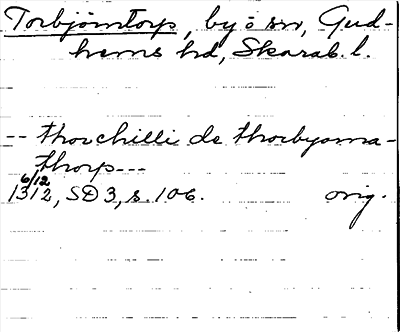 Torbjörntorp, by o sn, Gud-
hems hd, Skarab. l.
-- thorchilli de thorbyorna-
thorp---
6/12
1312, SD 3, s. 106. orig.